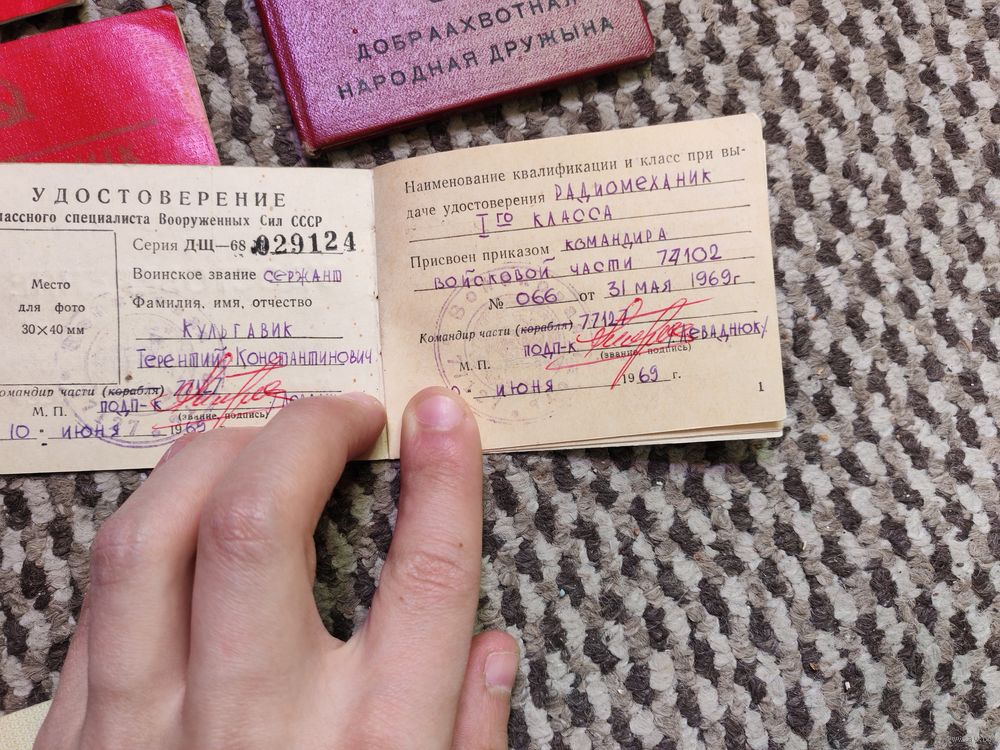 ДОБРААХВОТНАЯ
НАРОДНАЯ ДРУЖЫНА
УДОСТОВЕРЕНИЕ
классного специалиста Вооруженных Сил СССР
Серия ДЩ—68 029124
Место
для фото
30×40 мм
Воинское звание СЕРЖАНТ
Фамилия, имя, отчество
КУЛЬГАВИК
Терентий Константинович
Командир части (корабля)
М. П. ПОДП-К
(звание, подпись)
10 · ИЮНЯ 1969
Наименование квалификации и класс при вы-
даче удостоверения РАДИОМЕХАНИК
Iго КЛАССА
Присвоен приказом КОМАНДИРА
ВОЙСКОВОЙ ЧАСТИ 77102
№ 066 от 31 МАЯ 1969г
Командир части (корабля) 77127
М. П. ПОДП-К
(звание, подпись)
ИЮНЯ 1969 г.
1